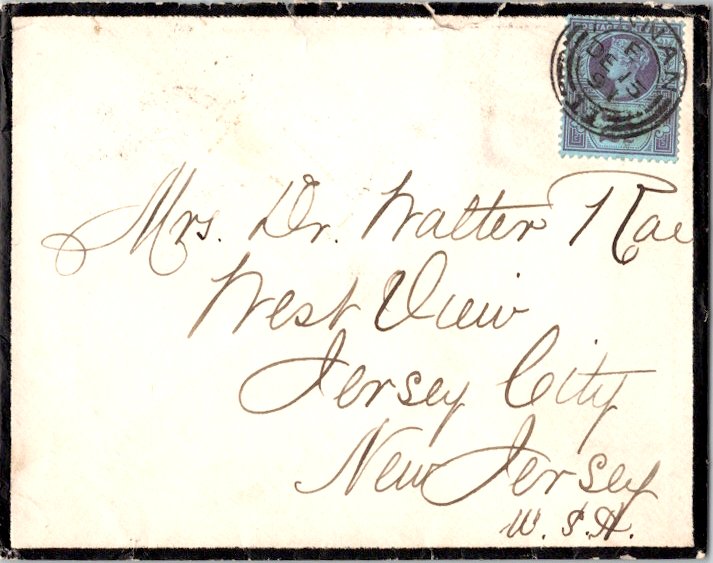 E
DE 15
91
Mrs. Dr. Walter Rae
West View
Jersey City
New Jersey
U. S. A.